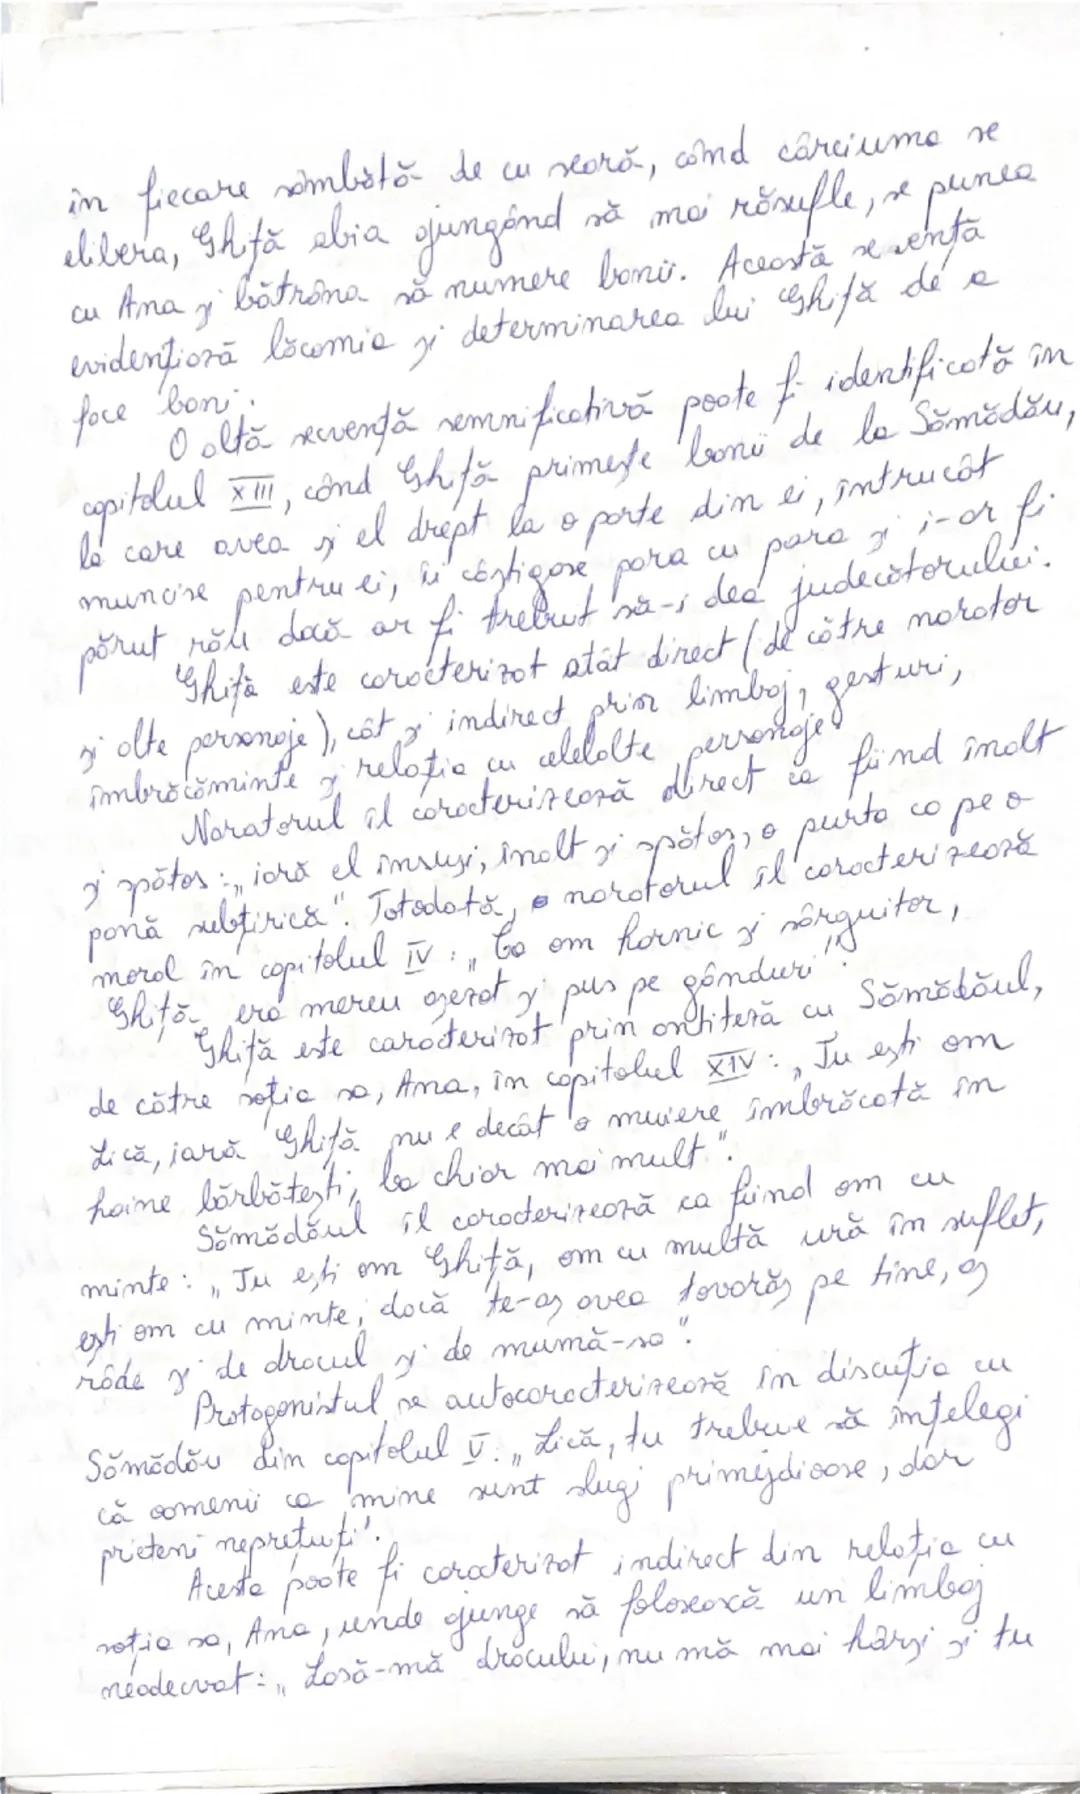 în fiecare sâmbătă de cu seară, când cârciuma se
elibera, Ghiță abia ajungând să mai răsufle, se punea
cu Ana și bătrâna să numere banii. Această secvență
evidențiază lăcomia și determinarea lui Ghiță de a
face bani.
O altă secvență semnificativă poate fi identificată în
capitolul XIII, când Ghiță primește banii de la Sămădău,
la care avea și el drept la o parte din ei, întrucât
muncise pentru ei, îi câștigase para cu para și i-ar fi
părut rău dacă ar fi trebuit să-i dea judecătorului.
Ghiță este caracterizat atât direct (de către narator
și alte personaje), cât și indirect prin limbaj, gesturi,
îmbrăcăminte și relația cu celelalte personaje.
Naratorul îl caracterizează direct ca fiind înalt
și spătos: „iară el însuși, înalt și spătos, o purta ca pe o
pană subțirică". Totodată, naratorul îl caracterizează
moral în capitolul IV: „Ca om harnic și sârguitor,
Ghiță era mereu așezat și pus pe gânduri".
Ghiță este caracterizat prin antiteză cu Sămădăul,
de către soția sa, Ana, în capitolul XIV: „Tu ești om
Lică, iară Ghiță nu e decât o muiere îmbrăcată în
haine bărbătești, ba chiar mai mult.".
Sămădăul îl caracterizează ca fiind om cu
minte: „Tu ești om Ghiță, om cu multă ură în suflet,
ești om cu minte, dacă te-aș avea tovarăș pe tine, aș
râde și de dracul și de mumă-sa".
Protagonistul se autocaracterizează în discuția cu
Sămădău din capitolul V: „Lică, tu trebuie să înțelegi
că oamenii ca mine sunt slugi primejdioase, dar
prieteni neprețuiți".
Acesta poate fi caracterizat indirect din relația cu
soția sa, Ana, unde ajunge să folosească un limbaj
neadecvat: „Lasă-mă dracului, nu mă mai hărși și tu